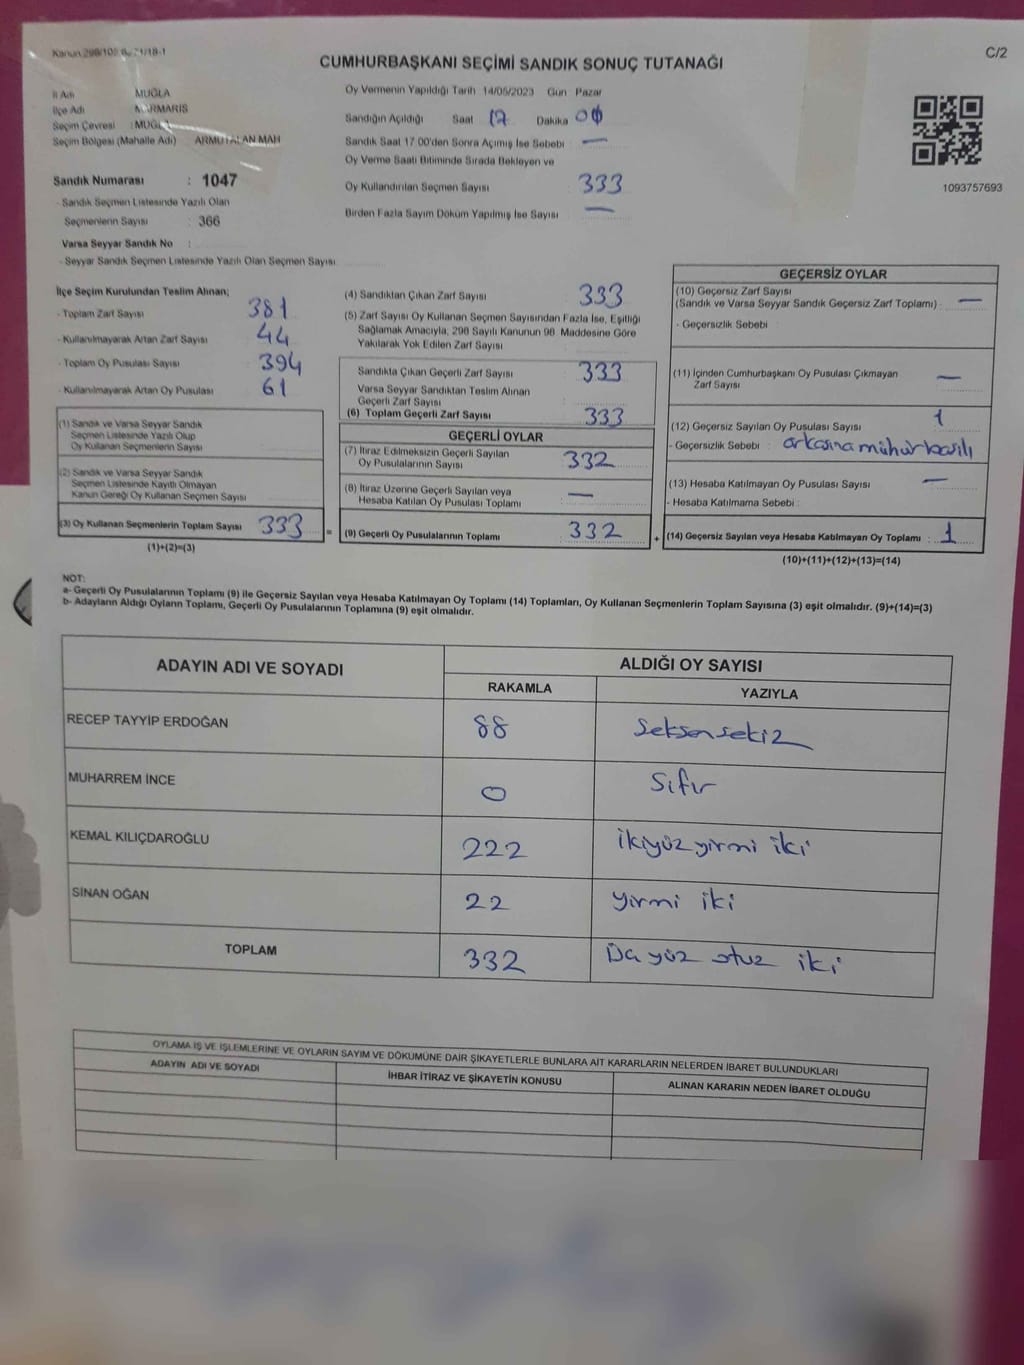 Kanun 298/105 6. 21/18-1
C/2
CUMHURBAŞKANI SEÇİMİ SANDIK SONUÇ TUTANAĞI
İl Adı MUĞLA
İlçe Adı MARMARİS
Seçim Çevresi : MUĞLA
Seçim Bölgesi (Mahalle Adı) ARMUTALAN MAH
Sandık Numarası : 1047
- Sandık Seçmen Listesinde Yazılı Olan
Seçmenlerin Sayısı : 366
Varsa Seyyar Sandık No :
- Seyyar Sandık Seçmen Listesinde Yazılı Olan Seçmen Sayısı
Oy Vermenin Yapıldığı Tarih 14/05/2023 Gün Pazar
Sandığın Açıldığı Saat 17 Dakika 00
Sandık Saat 17 00'den Sonra Açımış İse Sebebi —
Oy Verme Saati Bitiminde Sırada Bekleyen ve
Oy Kullandırılan Seçmen Sayısı 333
Birden Fazla Sayım Döküm Yapılmış İse Sayısı —
1093757693
İlçe Seçim Kurulundan Teslim Alınan;
- Toplam Zarf Sayısı 381
- Kullanılmayarak Artan Zarf Sayısı 44
- Toplam Oy Pusulası Sayısı 394
- Kullanılmayarak Artan Oy Pusulası 61
(1) Sandık ve Varsa Seyyar Sandık
Seçmen Listesinde Yazılı Olup
Oy Kullanan Seçmenlerin Sayısı
(2) Sandık ve Varsa Seyyar Sandık
Seçmen Listesinde Kayıtlı Olmayan
Kanun Gereği Oy Kullanan Seçmen Sayısı
(3) Oy Kullanan Seçmenlerin Toplam Sayısı 333 =
(1)+(2)=(3)
(4) Sandıktan Çıkan Zarf Sayısı 333
(5) Zarf Sayısı Oy Kullanan Seçmen Sayısından Fazla İse, Eşitliği
Sağlamak Amacıyla, 298 Sayılı Kanunun 98. Maddesine Göre
Yakılarak Yok Edilen Zarf Sayısı
Sandıkta Çıkan Geçerli Zarf Sayısı 333
Varsa Seyyar Sandıktan Teslim Alınan
Geçerli Zarf Sayısı
(6) Toplam Geçerli Zarf Sayısı 333
GEÇERLİ OYLAR
(7) İtiraz Edilmeksizin Geçerli Sayılan
Oy Pusulalarının Sayısı 332
(8) İtiraz Üzerine Geçerli Sayılan veya
Hesaba Katılan Oy Pusulası Toplamı —
(9) Geçerli Oy Pusulalarının Toplamı 332 +
GEÇERSİZ OYLAR
(10) Geçersiz Zarf Sayısı
(Sandık ve Varsa Seyyar Sandık Geçersiz Zarf Toplamı) : —
- Geçersizlik Sebebi :
(11) İçinden Cumhurbaşkanı Oy Pusulası Çıkmayan
Zarf Sayısı —
(12) Geçersiz Sayılan Oy Pusulası Sayısı 1
- Geçersizlik Sebebi : arkasına mühür basılı
(13) Hesaba Katılmayan Oy Pusulası Sayısı —
- Hesaba Katılmama Sebebi :
(14) Geçersiz Sayılan veya Hesaba Katılmayan Oy Toplamı : 1
(10)+(11)+(12)+(13)=(14)
NOT:
a- Geçerli Oy Pusulalarının Toplamı (9) ile Geçersiz Sayılan veya Hesaba Katılmayan Oy Toplamı (14) Toplamları, Oy Kullanan Seçmenlerin Toplam Sayısına (3) eşit olmalıdır. (9)+(14)=(3)
b- Adayların Aldığı Oyların Toplamı, Geçerli Oy Pusulalarının Toplamına (9) eşit olmalıdır.
ADAYIN ADI VE SOYADI ALDIĞI OY SAYISI
RAKAMLA YAZIYLA
RECEP TAYYİP ERDOĞAN 88 Seksensekiz
MUHARREM İNCE 0 Sıfır
KEMAL KILIÇDAROĞLU 222 İkiyüzyirmi iki
SİNAN OĞAN 22 Yirmi iki
TOPLAM 332 yüz otuz iki
OYLAMA İŞ VE İŞLEMLERİNE VE OYLARIN SAYIM VE DÖKÜMÜNE DAİR ŞİKAYETLERLE BUNLARA AİT KARARLARIN NELERDEN İBARET BULUNDUKLARI
ADAYIN ADI VE SOYADI İHBAR İTİRAZ VE ŞİKAYETİN KONUSU ALINAN KARARIN NEDEN İBARET OLDUĞU